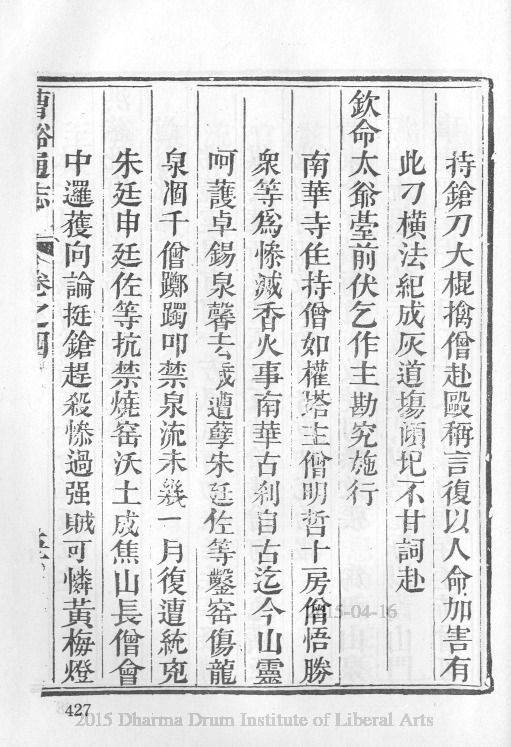 持鎗刀大棍擒僧赴毆稱言復以人命加害有
此刁橫法紀成灰道塲傾圯不甘詞赴
欽命太爺臺前伏乞作主勘究施行
南華寺住持僧如權塔主僧明哲十房僧悟勝
衆等爲慘滅香火事南華古刹自古迄今山靈
呵護卓錫泉馨去歲遭孽朱廷佐等鑿窑傷龍
泉涸千僧躑躅叩禁泉流未幾一月復遭統兇
朱廷申廷佐等抗禁燒窑沃土成焦山長僧會
中邏蒦向論挺鎗趕殺慘過强賊可憐黃梅燈
曹谿通志 卷之四
427
2015-04-16
2015 Dharma Drum Institute of Liberal Arts